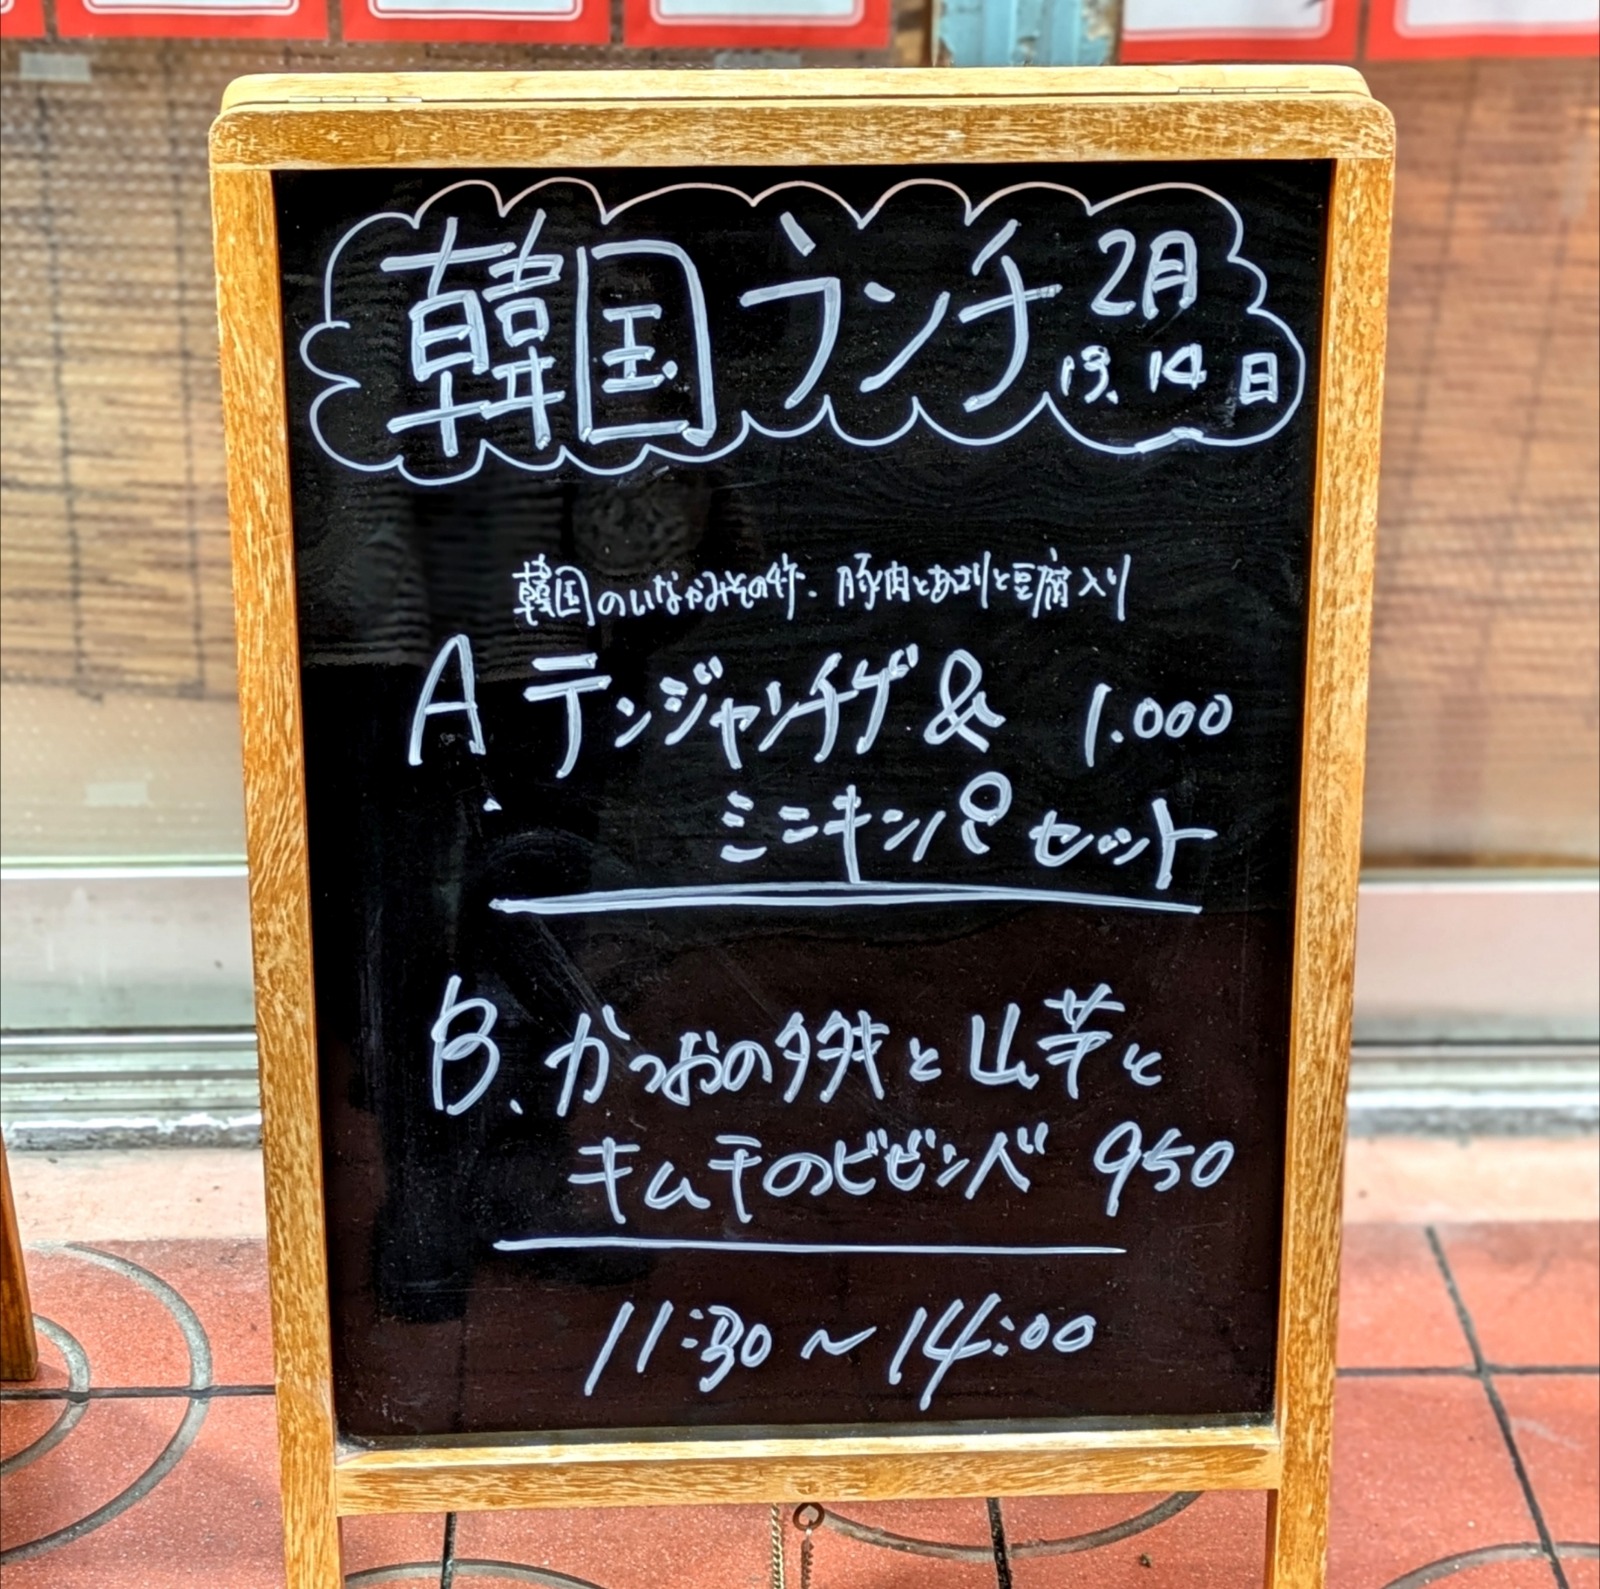 韓国ランチ 2月
13.14日
韓国のいなかみその汁. 豚肉とあさりと豆腐入り
A. テンジャンチゲ& 1.000
ミニキンパセット
B. かつおのタタキと山芋と
キムチのビビンバ 950
11:30～14:00